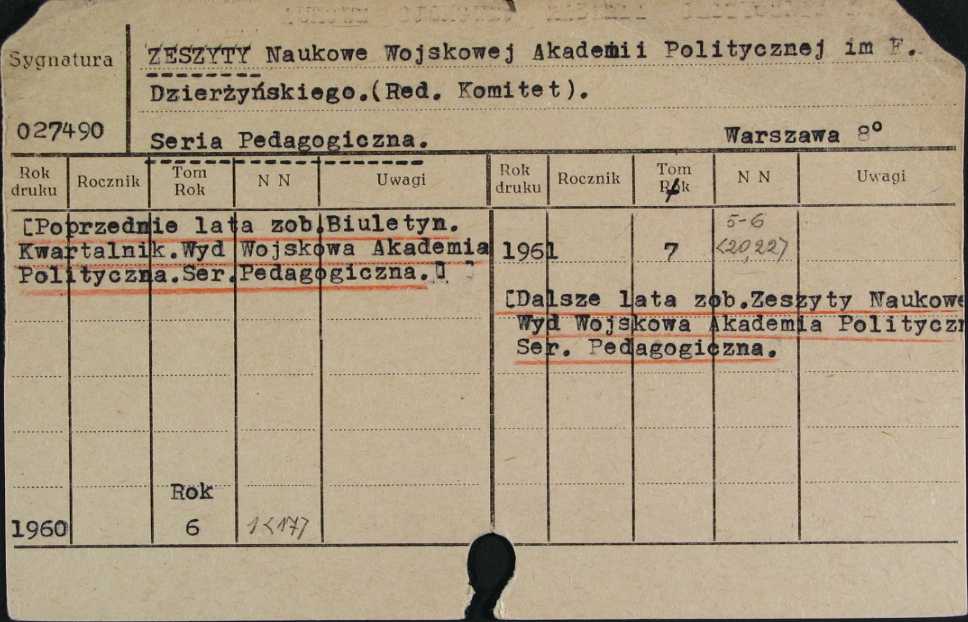 Sygnatura
027490
ZESZYTY Naukowe Wojskowej Akademii Politycznej im F.
Dzierżyńskiego.(Red. Komitet).
Seria Pedagogiczna. Warszawa 8°
Rok druku Rocznik Tom Rok N N Uwagi Rok druku Rocznik Tom Rok N N Uwagi
[Poprzednie lata zob.Biuletyn.
Kwartalnik.Wyd Wojskowa Akademia
Polityczna.Ser.Pedagogiczna.]
Rok
1960 6 1<17>
1961 7 5-6 <20,22>
[Dalsze lata zob.Zeszyty Naukowe
Wyd Wojskowa Akademia Polityczn
Ser. Pedagogiczna.